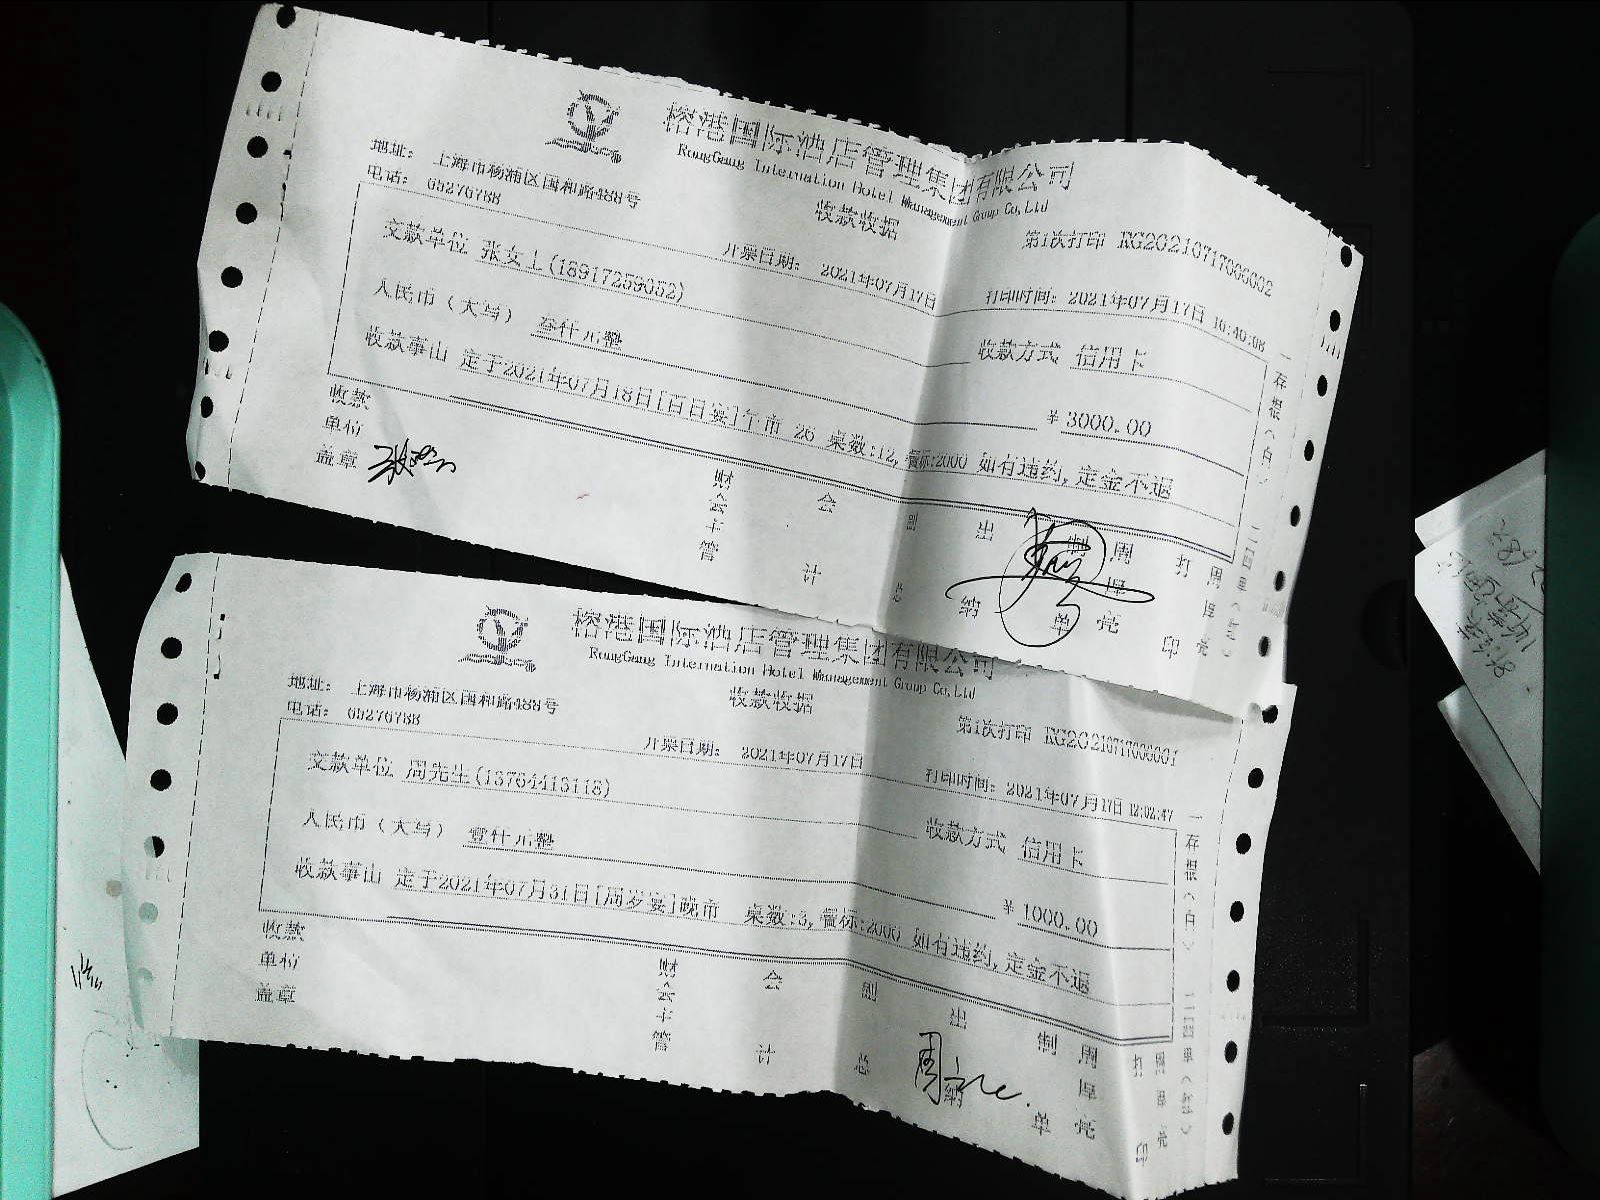 榕港国际酒店管理集团有限公司
RongGang Internation Hotel Management Group Co,Ltd
地址： 上海市杨浦区国和路488号
电话： 65276788
收款收据
第1次打印 RG20210717000002
开票日期： 2021年07月17日
打印时间：2021年07月17日 10:40:08
交款单位 张女士(18917259052)
收款方式 信用卡
人民币（大写） 叁仟元整
￥3000.00
收款事由 定于2021年07月18日[百日宴]午市 26 桌数:12,餐标:2000 如有违约,定金不退
一存根（白）
收款单位盖章
财会主管
会计
副总
出纳
制单
周厚亮
打印
周厚亮
榕港国际酒店管理集团有限公司
RongGang Internation Hotel Management Group Co,Ltd
地址： 上海市杨浦区国和路488号
电话： 65276788
收款收据
第1次打印 RG20210717000001
开票日期： 2021年07月17日
打印时间：2021年07月17日 12:02:47
交款单位 周先生(13764413118)
收款方式 信用卡
人民币（大写） 壹仟元整
￥1000.00
收款事由 定于2021年07月31日[周岁宴]晚市 桌数:3,餐标:2000 如有违约,定金不退
一存根（白）
收款单位盖章
财会主管
会计
副总
出纳
制单
周厚亮
打印
周厚亮